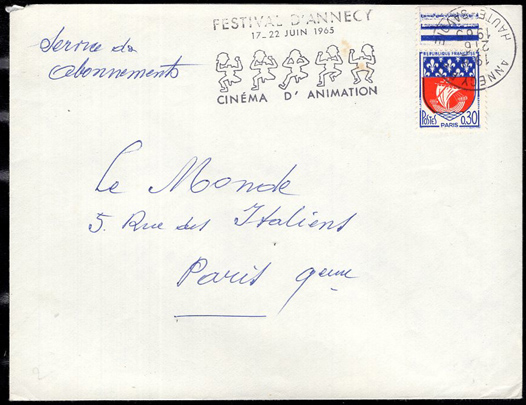 FESTIVAL D'ANNECY
17-22 JUIN 1965
CINÉMA D'ANIMATION
ANNECY
HAUTE-SAVOIE
1965
RÉPUBLIQUE FRANÇAISE
POSTES 0,30
PARIS
Service des
abonnements
Le Monde
5. Rue des Italiens
Paris 9eme